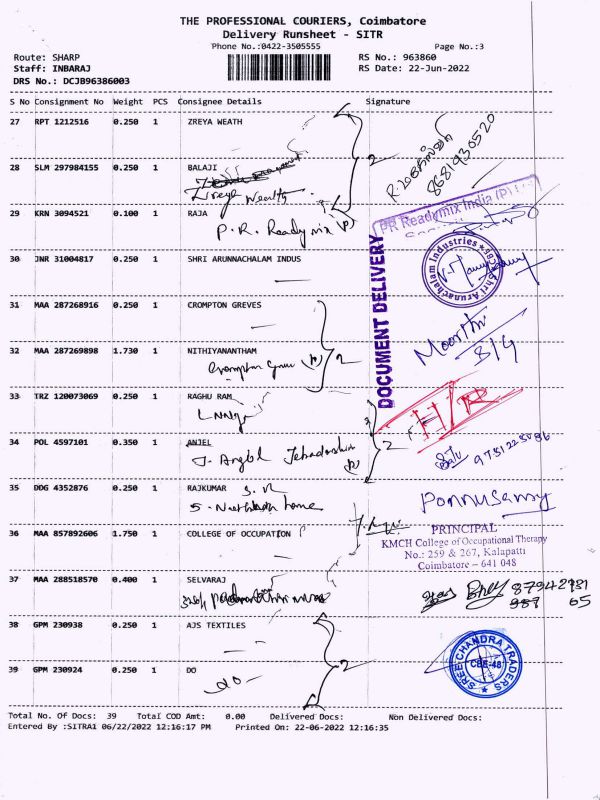 THE PROFESSIONAL COURIERS, Coimbatore
Delivery Runsheet - SITR
Phone No.:0422-3505555 Page No.:3
Route: SHARP RS No.: 963860
Staff: INBARAJ RS Date: 22-Jun-2022
DRS No.: DCJB96386003
S No Consignment No Weight PCS Consignee Details Signature
27 RPT 1212516 0.250 1 ZREYA WEATH
8681930520
28 SLM 297984155 0.250 1 BALAJI
Zreya Wealth
2
29 KRN 3094521 0.100 1 RAJA
P.R. Ready mix (P)
PR Readymix India (P)
30 JNR 31004817 0.250 1 SHRI ARUNNACHALAM INDUS
Shri Arunachalam Industries
DOCUMENT DELIVERY
31 MAA 287268916 0.250 1 CROMPTON GREVES
Moorthi
32 MAA 287269898 1.730 1 NITHIYANANTHAM
2
33 TRZ 120073069 0.250 1 RAGHU RAM
H/R
34 POL 4597101 0.350 1 ANJEL
2
35 DDG 4352876 0.250 1 RAJKUMAR S.R
Ponnusamy
36 MAA 857892606 1.750 1 COLLEGE OF OCCUPATION
PRINCIPAL
KMCH College of Occupational Therapy
No.: 259 & 267, Kalapatti
Coimbatore – 641 048
37 MAA 288518570 0.400 1 SELVARAJ
87942981
65
38 GPM 230938 0.250 1 AJS TEXTILES
2
SREE CHANDRA TRADERS
CBE-48
39 GPM 230924 0.250 1 DO
-do-
Total No. Of Docs: 39 Total COD Amt: 0.00 Delivered Docs: Non Delivered Docs:
Entered By :SITRA1 06/22/2022 12:16:17 PM Printed On: 22-06-2022 12:16:35